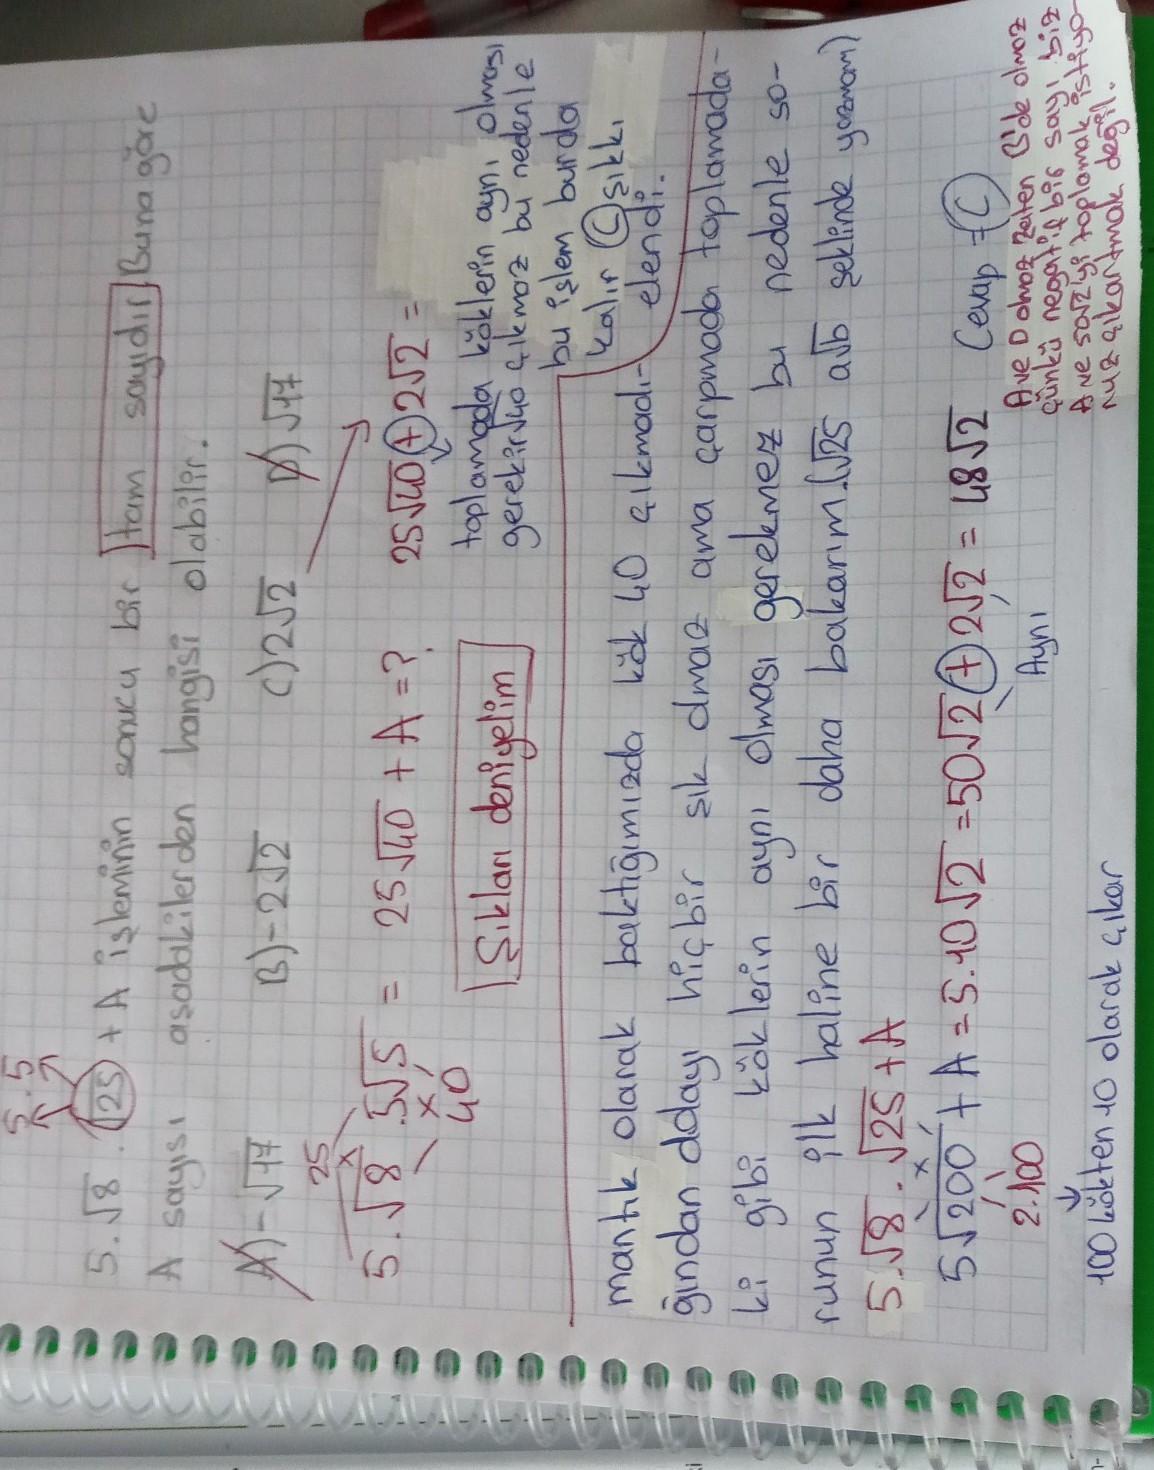 5.5
5.√8.√25 + A işleminin sonucu bir tam sayıdır Buna göre
A sayısı asadakilerden hangisi olabilir.
A)-√17 B)-2√2 C)2√2 D)√17
25
5.√8.5√5 = 25√40 + A =? 25√40+2√2 =
40
Şıkları deniyelim
toplamada köklerin aynı olması
gerekir√40 çıkmaz bu nedenle
bu işlem burda
kalır C şıkkı
elendi.
mantık olarak baktığımızda kök 40 çıkmadı-
ğından dolayı hiçbir şık olmaz ama çarpmada toplamada-
ki gibi köklerin aynı olması gerekmez bu nedenle so-
runun ilk haline bir daha bakarım.(√25 a√b şeklinde yazmam)
5.√8.√25 + A
5√200 + A = 5.10√2 = 50√2+2√2 = 48√2 Cevap = C
2.100
Aynı
100 kökten 10 olarak çıkar
A ve D olmaz zaten B'de olmaz
çünkü negatif bir sayı biz
A ne sayıyı toplamak istiyo-
ruz çıkartmak değil.